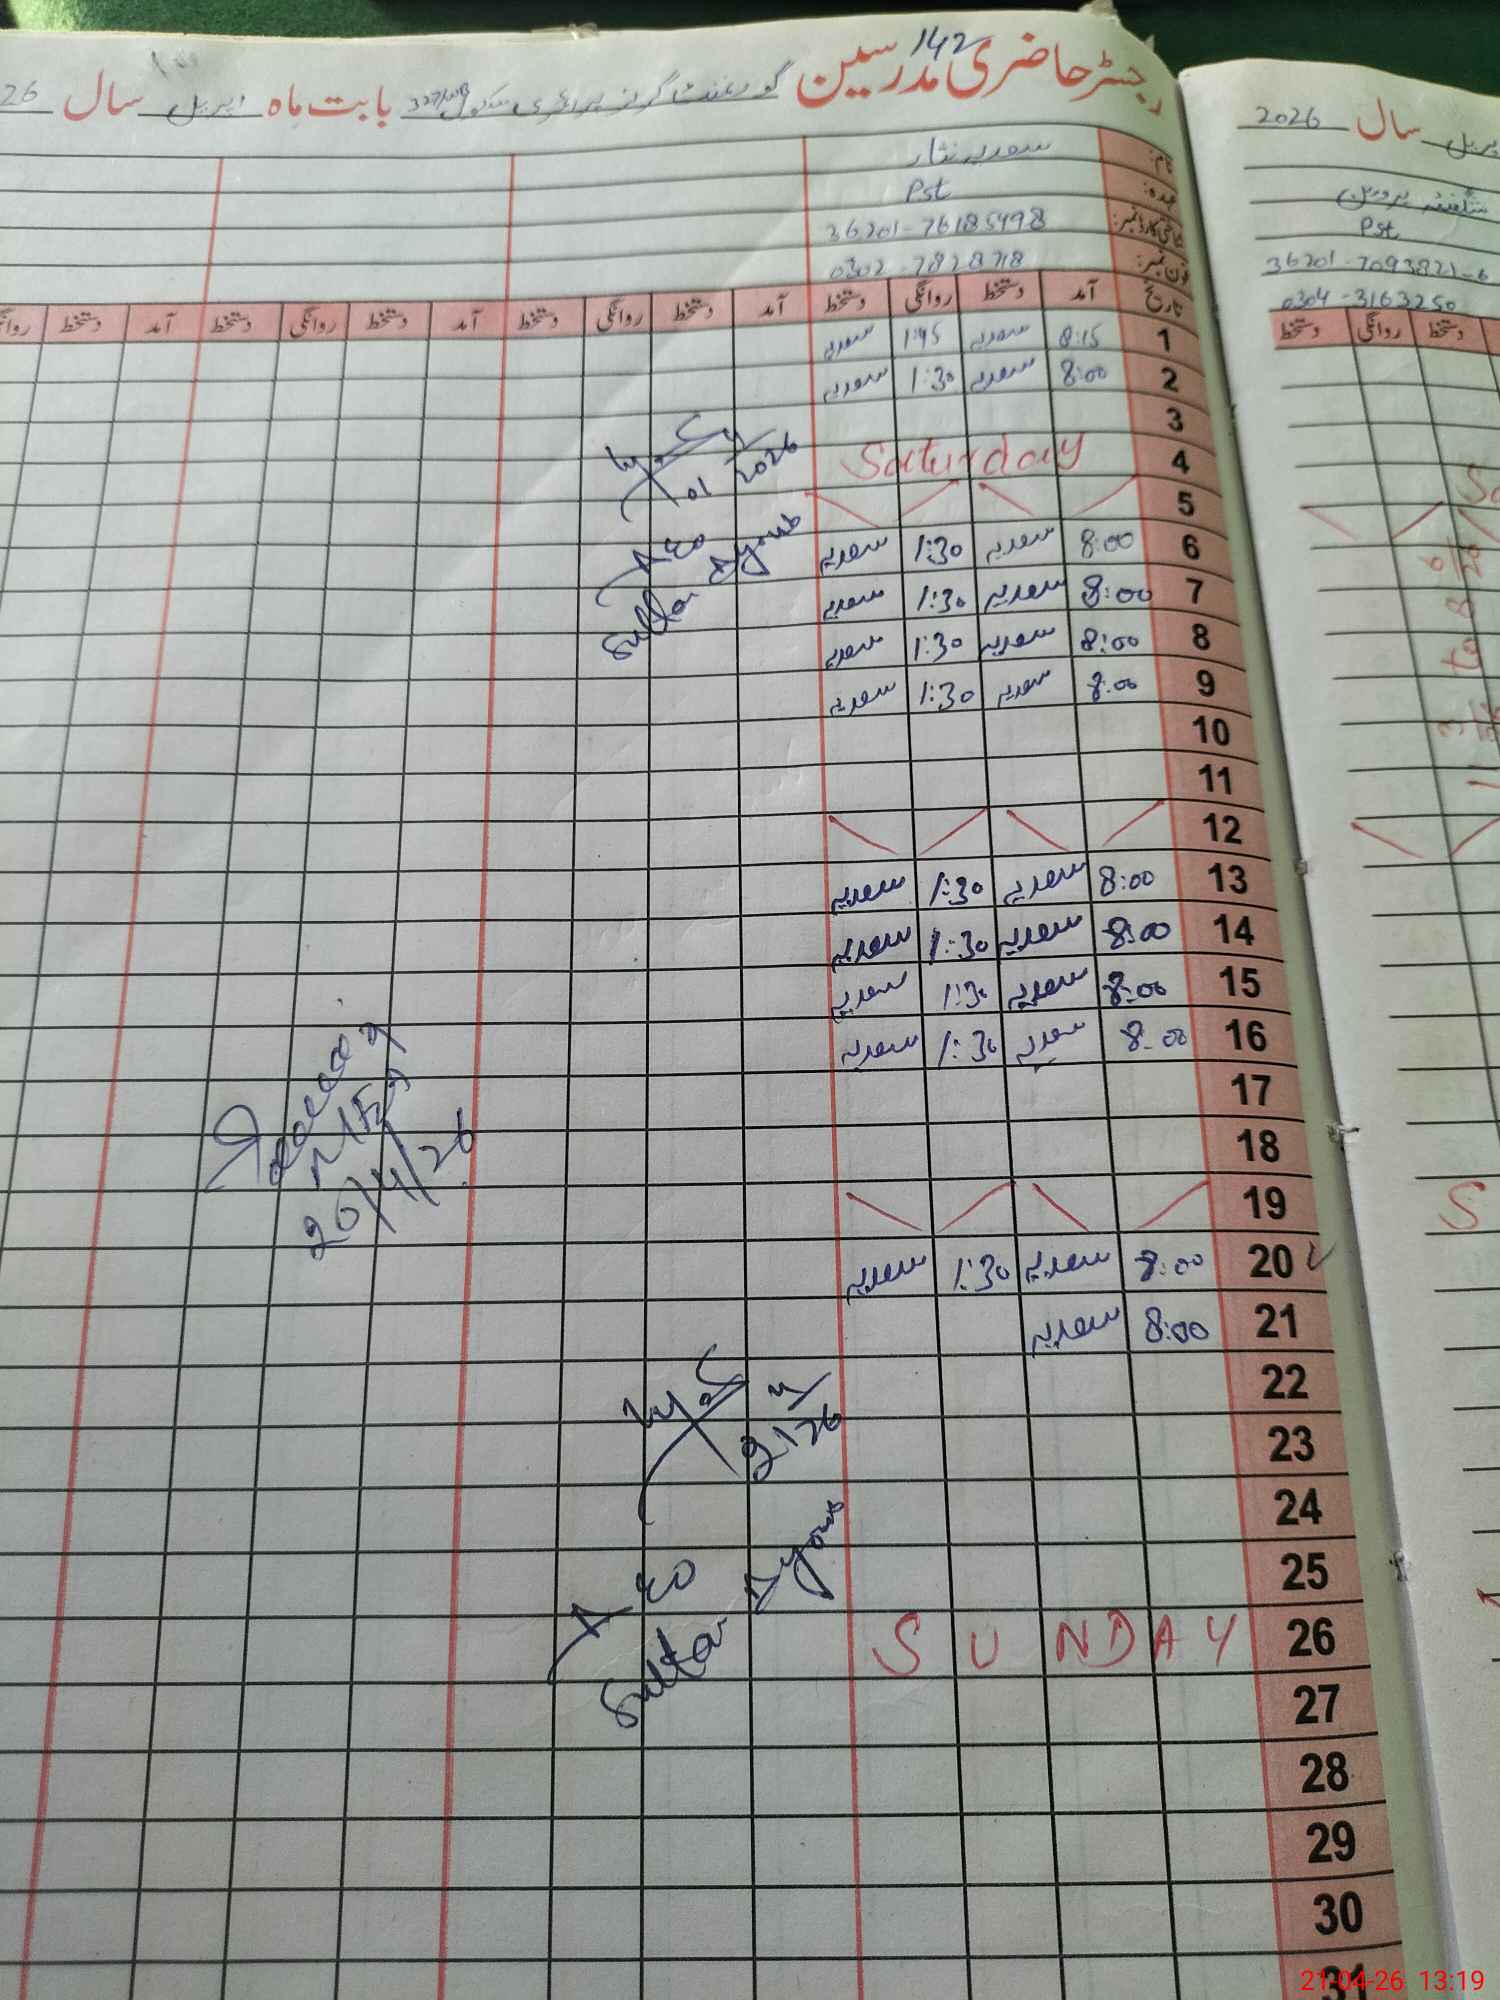 142
رجسٹر حاضری مدرسین گورنمنٹ گرلز پرائمری سکول 327/WB بابت ماہ اپریل سال 26
نام: سعدیہ نثار
عہدہ: Pst
شناختی کارڈ نمبر: 36201-76185498
فون نمبر: 0302-7828718
تاریخ آمد دستخط روانگی دستخط آمد دستخط روانگی دستخط آمد دستخط روانگی دستخط آمد دستخط
1 8:15 سعدیہ 1:45 سعدیہ
2 8:00 سعدیہ 1:30 سعدیہ
3
4 Saturday
5
6 8:00 سعدیہ 1:30 سعدیہ
7 8:00 سعدیہ 1:30 سعدیہ
8 8:00 سعدیہ 1:30 سعدیہ
9 8:00 سعدیہ 1:30 سعدیہ
10
11
12
13 8:00 سعدیہ 1:30 سعدیہ
14 8:00 سعدیہ 1:30 سعدیہ
15 8:00 سعدیہ 1:30 سعدیہ
16 8:00 سعدیہ 1:30 سعدیہ
17
18
19
20 8:00 سعدیہ 1:30 سعدیہ
21 8:00 سعدیہ
22
23
24
25
26 SUNDAY
27
28
29
30
31
01 2026
AEO
Sultan Ayoub
20/4/26
21 26
AEO
Sultan Ayoub
سال 2026
شگفتہ پروین
Pst
36201-7093821-6
0304-3163250
دستخط روانگی دستخط
S
21-04-26 13:19